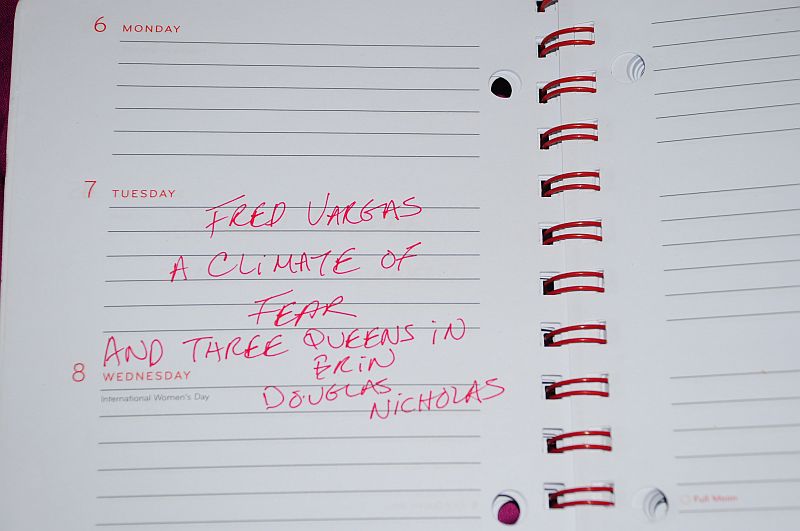 6 MONDAY
7 TUESDAY
FRED VARGAS
A CLIMATE OF
FEAR
AND THREE QUEENS IN
ERIN
8 WEDNESDAY
DOUGLAS
International Women's Day
NICHOLAS
Full Moon